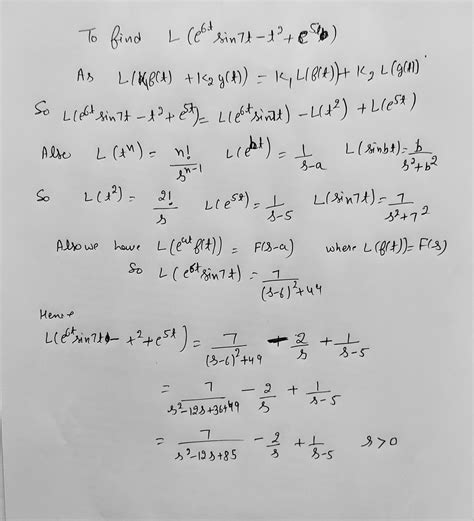 To find L(e^{6t} sin7t - t^2 + e^{5t})
As L(k_1 f(t) + k_2 g(t)) = k_1 L(f(t)) + k_2 L(g(t))
So L(e^{6t} sin7t - t^2 + e^{5t}) = L(e^{6t} sin7t) - L(t^2) + L(e^{5t})
Also L(t^n) = n!/s^{n-1} L(e^{bt}) = 1/(s-a) L(sinbt) = b/(s^2+b^2)
So L(t^2) = 2!/s L(e^{5t}) = 1/(s-5) L(sin7t) = 7/(s^2+7^2)
Also we have L(e^{at} f(t)) = F(s-a) where L(f(t)) = F(s)
So L(e^{6t} sin7t) = 7/((s-6)^2+44)
Hence
L(e^{6t} sin7t - t^2 + e^{5t}) = 7/((s-6)^2+49) - 2/s + 1/(s-5)
= 7/(s^2-12s+36+49) - 2/s + 1/(s-5)
= 7/(s^2-12s+85) - 2/s + 1/(s-5) s>0